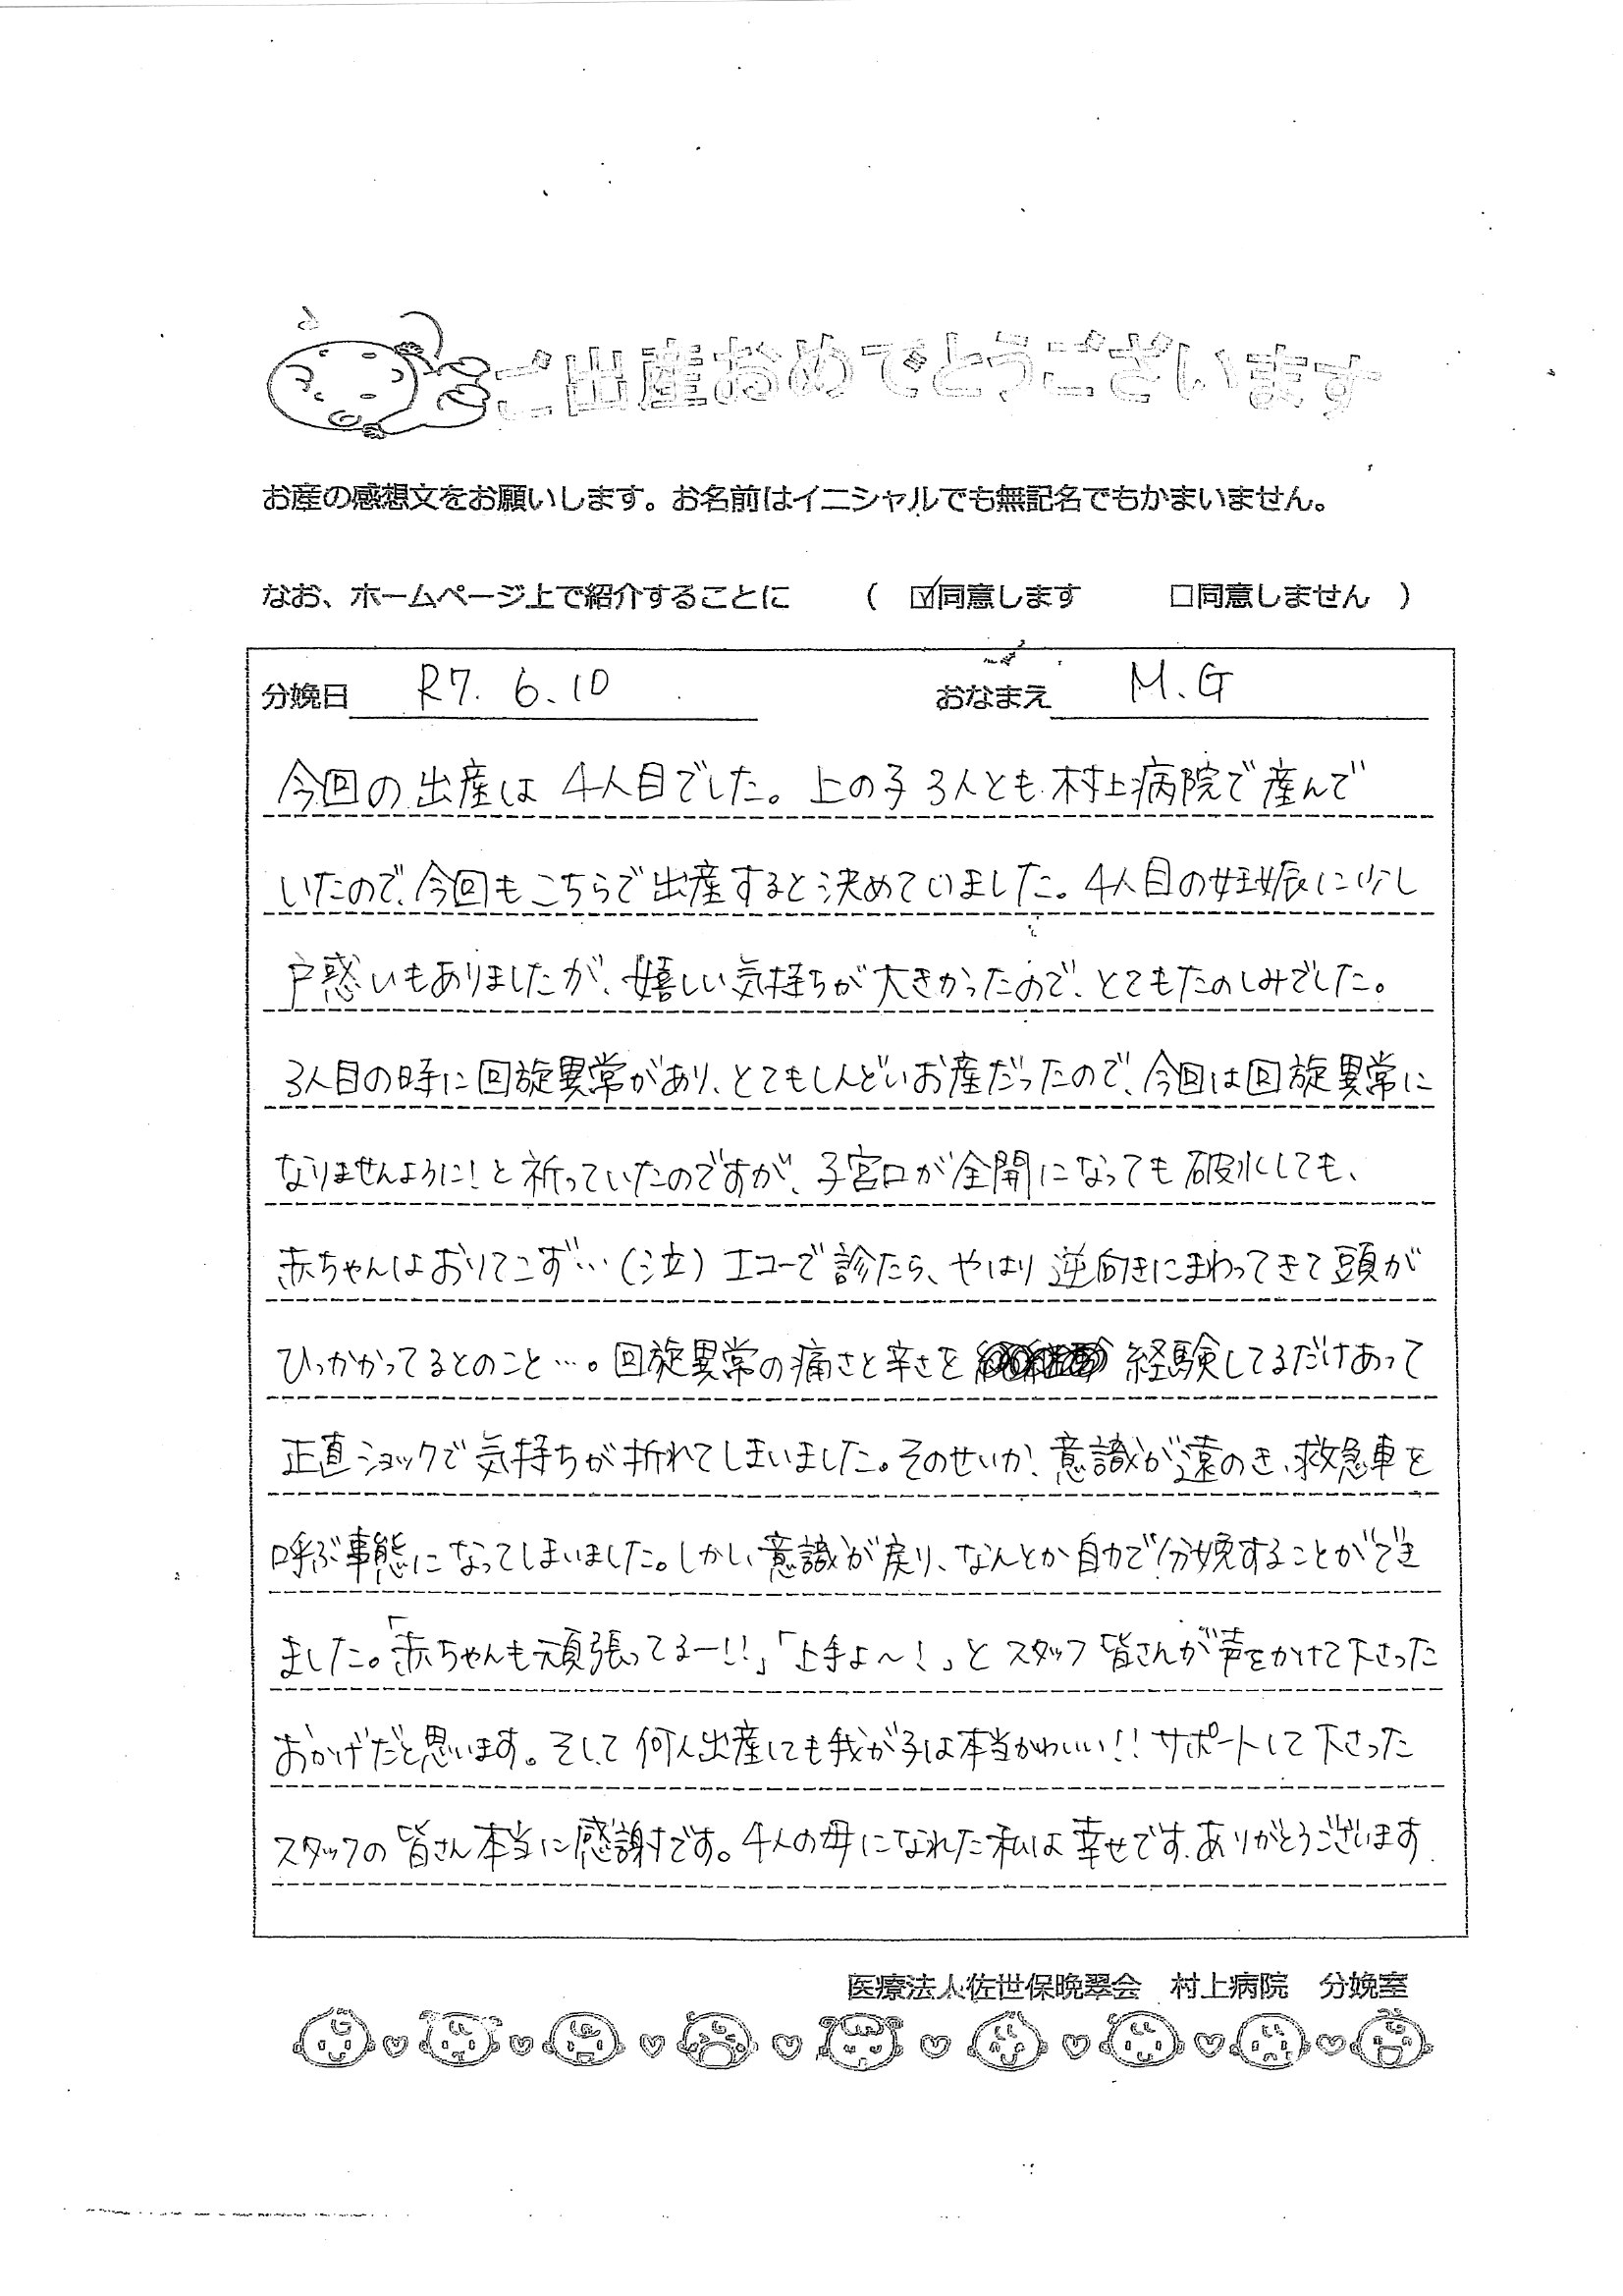 ご出産おめでとうございます
お産の感想文をお願いします。お名前はイニシャルでも無記名でもかまいません。
なお、ホームページ上で紹介することに （ ☑同意します □同意しません ）
分娩日 R7. 6. 10 おなまえ M. G
今回の出産は 4人目でした。上の子3人とも村上病院で産んで
いたので、今回もこちらで出産すると決めていました。4人目の妊娠に少し
戸惑いもありましたが、嬉しい気持ちが大きかったので、とてもたのしみでした。
3人目の時に回旋異常があり、とてもしんどいお産だったので、今回は回旋異常に
なりませんように！と祈っていたのですが、子宮口が全開になっても破水しても、
赤ちゃんはおりてこず…（泣）エコーで診たら、やはり逆向きにまわってきて頭が
ひっかかってるとのこと…。回旋異常の痛さと辛さを 経験してるだけあって
正直ショックで気持ちが折れてしまいました。そのせいか、意識が遠のき、救急車を
呼ぶ事態になってしまいました。しかし意識が戻り、なんとか自力で分娩することができ
ました。「赤ちゃんも頑張ってるー！！」「上手よ〜！」とスタッフ皆さんが声をかけて下さった
おかげだと思います。そして何人出産しても我が子は本当かわいい！！サポートして下さった
スタッフの皆さん本当に感謝です。4人の母になれた私は幸せです。ありがとうございます
医療法人佐世保晩翠会 村上病院 分娩室